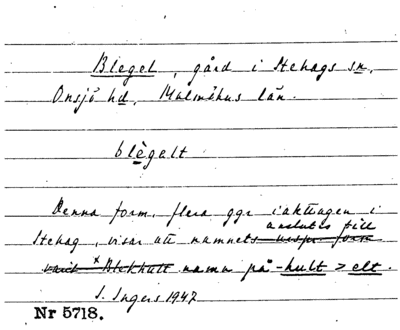 Blegel, gård i Stehags sn,
Onsjö hd, Malmöhus län.
blègalt
Denna form, flera ggr iakttagen i
anslutes till
Stehag, visar att namnets urspr form
varit *Blekhult namn på -hult > elt.
S. Ingers 1947
Nr 5718.